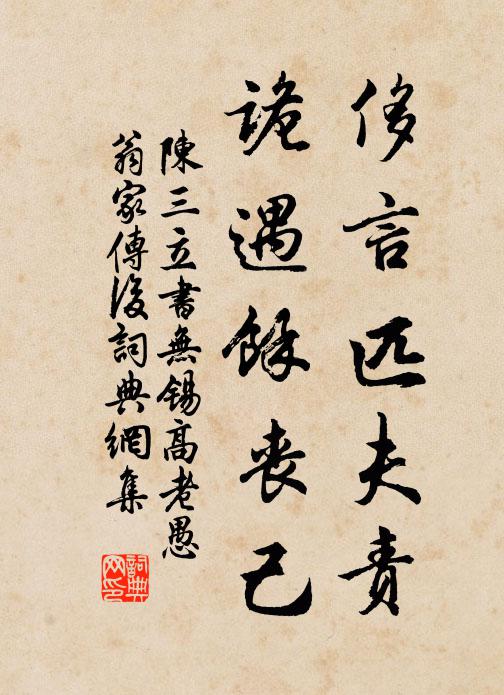 侈言匹夫責
詭遇餘喪己
陳三立書無錫高老愚
翁家傳後詞典網集
詞典網印